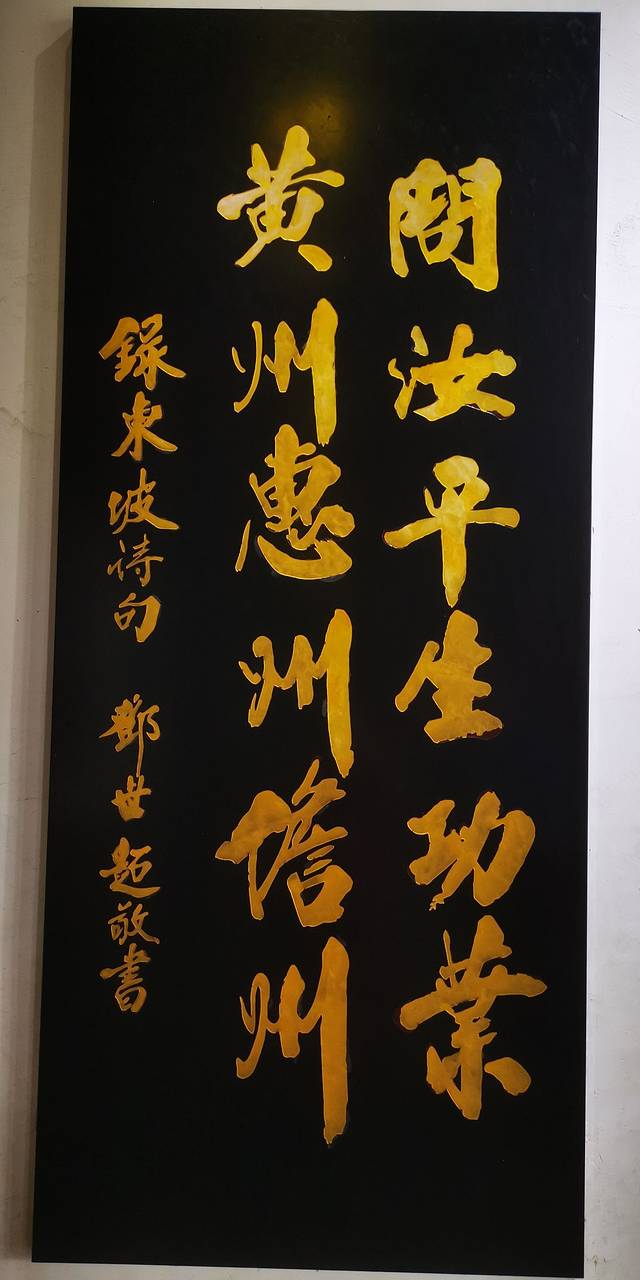 問汝平生功業
黄州惠州儋州
録東坡詩句 鄧世超敬書